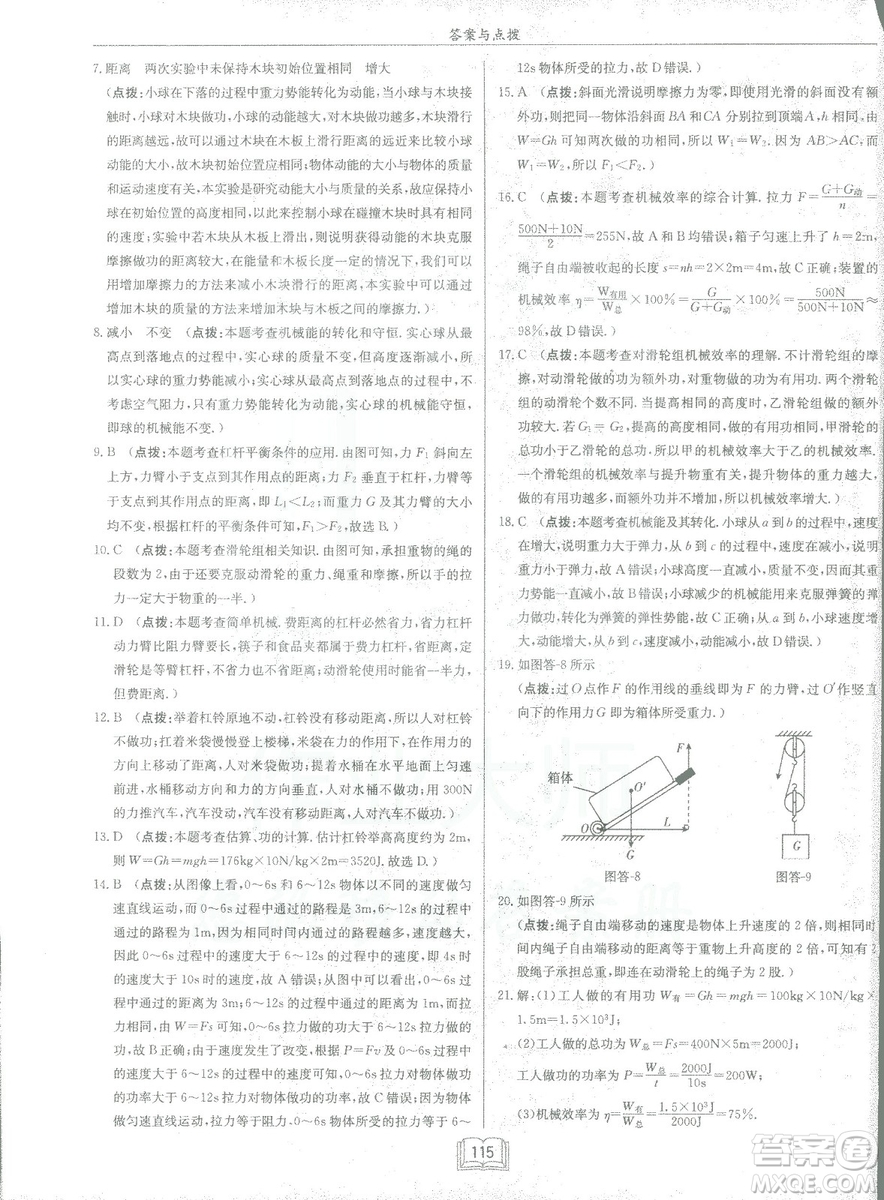 答案与点拨
7. 距离　两次实验中未保持木块初始位置相同　增大
(点拨：小球在下落的过程中重力势能转化为动能，当小球与木块接
触时，小球对木块做功，小球的动能越大，对木块做功越多，木块滑行
的距离越远，故可以利用木块在木板上滑行距离的远近来比较小球
动能的大小，故木块初始位置应相同；物体动能的大小与物体的质量
和运动速度有关，本实验是研究动能大小与质量的关系，故应保持小
球在初始位置的高度相同，以便获得小球在碰撞木块时具有相同
的速度；实验中若木块从木板上滑出，则说明获得动能的木块克服
摩擦力做功的距离较大，在能量和木板长度一定的情况下，我们可以
用增加摩擦力的方法来减小木块滑行的距离，则可以用增大
木块的质量的方法来增大木块与木板之间的摩擦力.)
8. 减小　不变　(点拨：本题考查机械能的转化和守恒. 实心球从最
高点到落地点的过程中，实心球的质量不变，但高度不断减小，所
以实心球的重力势能减小. 实心球从最高点到落地点的过程中，不
考虑空气阻力，只有重力势能转化为动能，实心球的机械能守恒，
即球的机械能不变.)
9. B　(点拨：本题考查杠杆平衡条件的应用. 由图可知，力 F₁ 斜向左
上方，力臂小于支点到其作用点的距离；力 F₂ 垂直于杠杆，力臂等
于支点到其作用点的距离，即 L₁＜L₂；而重力 G 及其力臂的大小
均不变，根据杠杆的平衡条件可知，F₁＞F₂，故选 B.)
10. C　(点拨：本题考查滑轮组相关知识. 由图可知，承担重物的绳的
段数为 2，由于还要克服动滑轮的重力、绳重和摩擦，所以工人的拉
力一定大于物重的一半.)
11. D　(点拨：本题考查简单机械. 费距离的杠杆必然省力，省力杠杆
动力臂比阻力臂长，筷子和食品夹都属于费力杠杆，省距离，定
滑轮为等臂杠杆，不省力也不省距离；动滑轮使用时能省一半力，
但费距离.)
12. B　(点拨：举着杠铃原地不动，杠铃没有移动距离，所以人对杠铃
不做功；扛着米袋慢慢登上楼梯，米袋在力的作用下，在力的
方向上移动了距离，人对米袋做功；提着水桶在水平地面上匀速
前进，水桶移动的方向与力的方向垂直，人对水桶不做功，用 300N
的力推汽车，汽车没动，汽车没有移动距离，人对汽车不做功.)
13. D　(点拨：本题考查估算、功的计算. 估计杠铃举高高度约为 2m，
则 W＝Gh＝mgh＝176kg×10N×2m＝3520J. 故选 D.)
14. B　(点拨：从图像上看，0～6s 和 6～12s 物体以不同的速度做匀
速直线运动，在 0～6s 过程中通过的路程是 3m，在 6～12s 过程中通过的路程
为 1m，因为在相同时间内通过的路程越多，速度越
大，因此 0～6s 过程中的速度大于 6～12s 过程中的速度，即 4s 时
的速度大于 10s 时的速度，故 A 错误；从图中可以看出，0～6s 过程中
通过的路程为 3m；6～12s 过程中通过的路程为 1m，拉力相同，
由 W＝Fs 可知 0～6s 拉力做的功大于 6～12s 过程中拉力做的功，
故 B 正确；由于速度发生了改变，根据 P＝Fv 及 0～6s 过程中的
速度大于 6～12s 过程中的速度可知，故 C 错误；由于物体
做匀速直线运动，拉力等于阻力，0～6s 物体所受的拉力等于 6～
12s 物体所受的拉力，故 D 错误.)
15. A　(点拨：斜面光滑说明摩擦力为零，即使用光滑的斜面没有额外
功，则把同一物体沿斜面 BA 和 CA 分别拉到顶端 A，h 相同，根据
W＝Gh 可知两次做的功相同，所以 W₁＝W₂. 因为 AB＞AC，而
W₁＝W₂，所以 F₁＜F₂.)
16. C　(点拨：本题考查机械效率的综合计算. 拉力 F＝(G＋G动)/n＝
(500N＋10N)/2＝255N，故 A 和 B 均错误；箱子匀速上升了 h＝2m，
绳子自由端被收起的长度 s＝nh＝2×2m＝4m，故 C 正确；装置的
机械效率 η＝W有用/W总×100％＝G/(G＋G动)×100％＝500N/(500N＋10N)≈
98％，故 D 错误.)
17. C　(点拨：本题考查对滑轮组机械效率的理解. 不计滑轮组的摩
擦，对动滑轮做的功为额外功，对重物做的功为有用功. 两个滑轮
组的动滑轮个数不同. 当提高相同的高度时，乙滑轮组做的额外
功较大. 若做的有用功相同，根据总功等于有用功加额外功，甲滑轮的
总功小于乙的总功，所以甲的机械效率大于乙的机械效率. 对于
一个滑轮组的机械效率与提升物重有关，提升的物体的重力越大，
做的有用功越多，额外功不变，则机械效率增加.)
18. C　(点拨：本题考查机械能及其转化. 小球从 a 到 b 的过程中，速度
在增大，说明重力大于弹力，从 b 到 c 的过程中，速度在减小，说明重力
小于弹力. 小球高度一直减小，质量不变，小球减少的机械能用来克服弹
力做功，转化为弹簧的弹性势能，故 C 正确. 小球从 a 到 b 的过程中，速度
增大，动能增大，从 b 到 c 的过程中，速度减小，动能减小，故 D 错误.)
19. 如图答-8 所示
(点拨：过 O 点作 F 的作用线的垂线即为 F 的力臂，过 O′作竖直
向下的作用力 G 即为箱体所受重力.)
F
箱体
O′
O
L
G
图答-8
G
图答-9
20. 如图答-9 所示
(点拨：绳子自由端移动的速度是物体上升速度的 2 倍，则相同时
间内绳子自由端移动的距离等于重物上升高度的 2 倍，可知有 2
股绳子承担重物，即连在动滑轮上的绳子为 2 股.)
21. 解：(1)工人做的有用功 W有＝Gh＝mgh＝100kg×10N/kg×
1.5m＝1.5×10³J；
(2)工人做的总功为 W总＝Fs＝400N×5m＝2000J；
工人做功的功率为 P＝W总/t＝2000J/10s＝200W；
(3)机械效率为 η＝W有/W总＝1.5×10³J/2000J＝75％.
115
答案圈
MXQE.COM